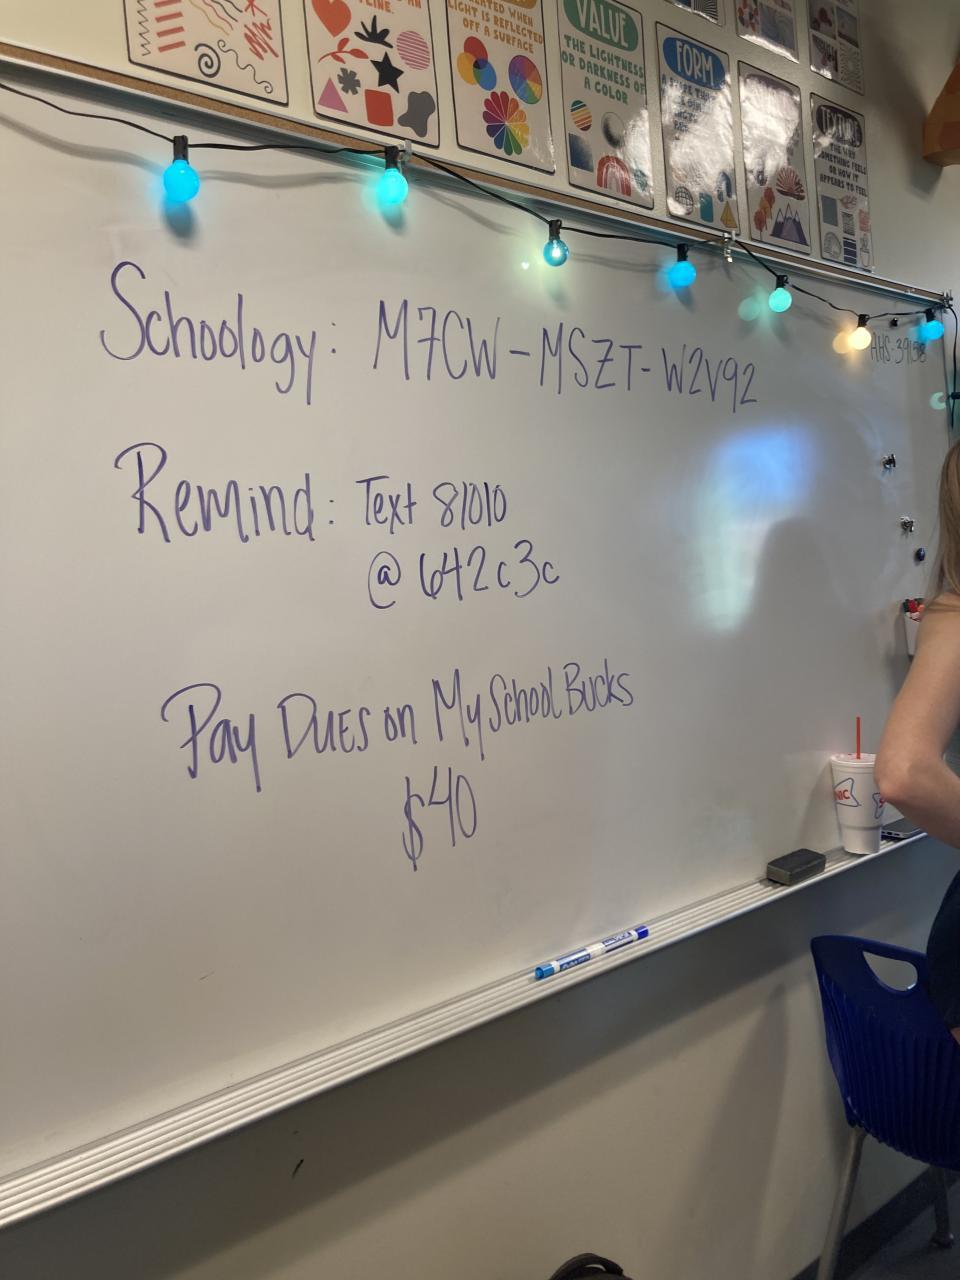 LINE.
CREATED WHEN
LIGHT IS REFLECTED
OFF A SURFACE
VALUE
THE LIGHTNESS
OR DARKNESS OF
A COLOR
FORM
TEXTURE
THE WAY
SOMETHING FEELS
OR IT
APPEARS TO FEEL
Schoology: M7CW-MSZT-W2V92
Remind: Text 81010
@642c3c
Pay Dues on My School Bucks
$40